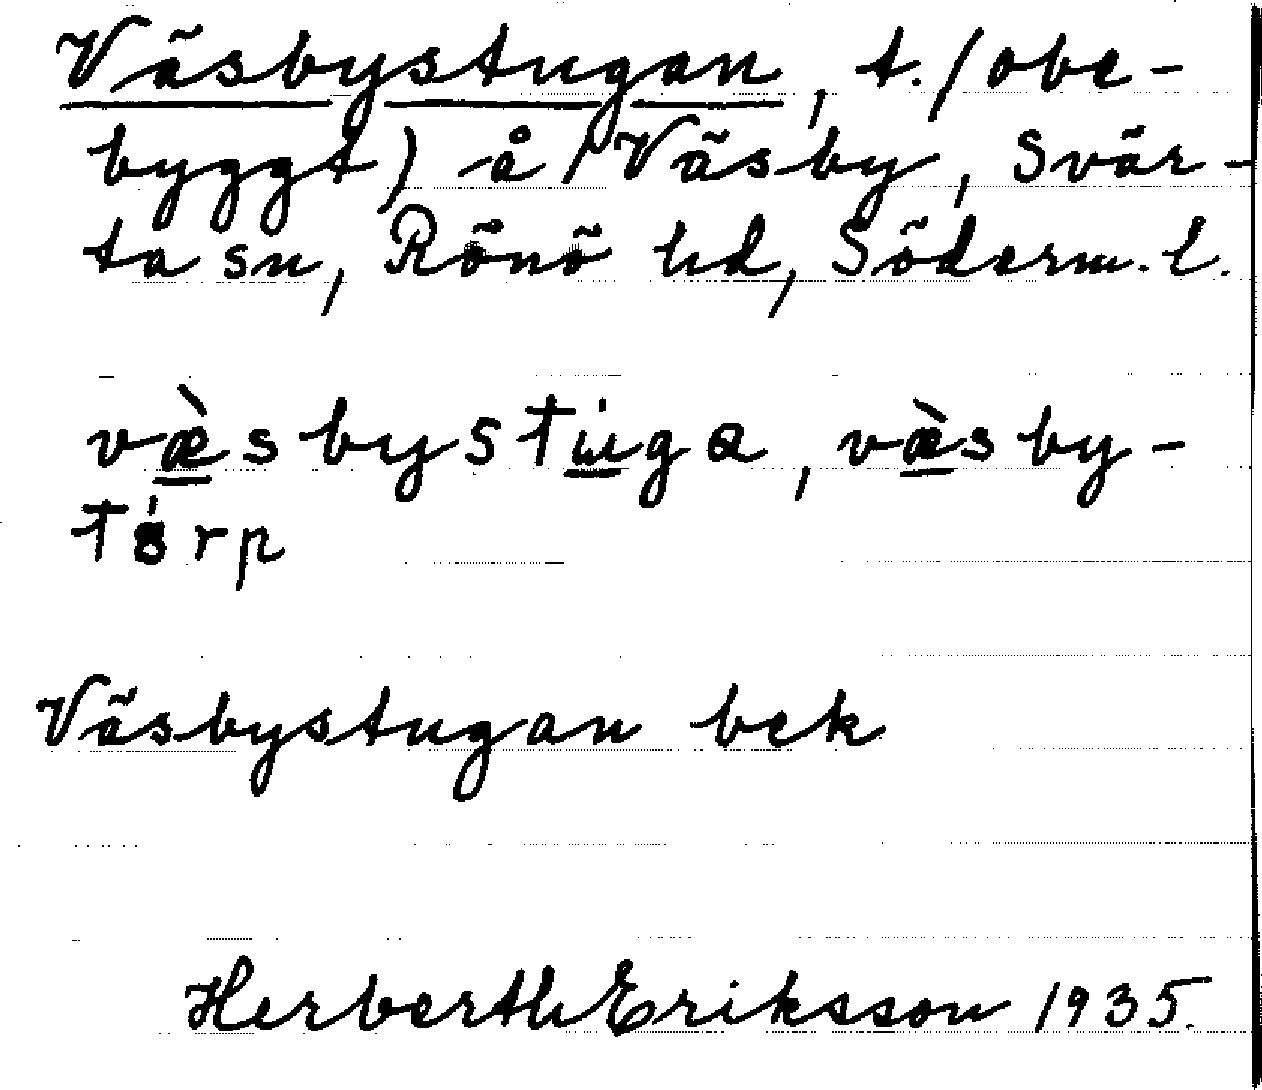 Väsbystugan, t. /obe-
byggt) å /Väsby, Svär-
ta sn, Rönö hd, Söderm. l.
væ̀sbystɯ́ga, væ̀sby-
tɵ́rp
Väsbystugan bek
Herberth Eriksson 1935.